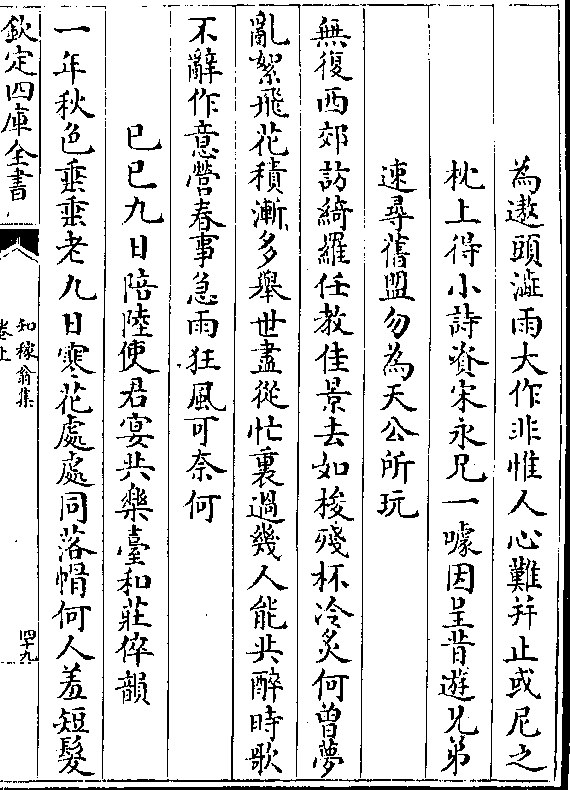 為遨頭澁雨大作非惟人心難并止或尼之
枕上得小詩資宋永兄一噱因呈昔遊兄弟
速尋舊盟勿為天公所玩
無復西郊訪綺羅任教佳景去如梭殘杯冷炙何曽夢
亂絮飛花積漸多舉世盡從忙裏過幾人能共醉時歌
不辭作意營春事急雨狂風可奈何
己巳九日陪陸使君宴共樂臺和莊倅韻
一年秋色垂垂老九日寒花處處同落帽何人羞短髮
欽定四庫全書
知稼翁集
卷上
四十九